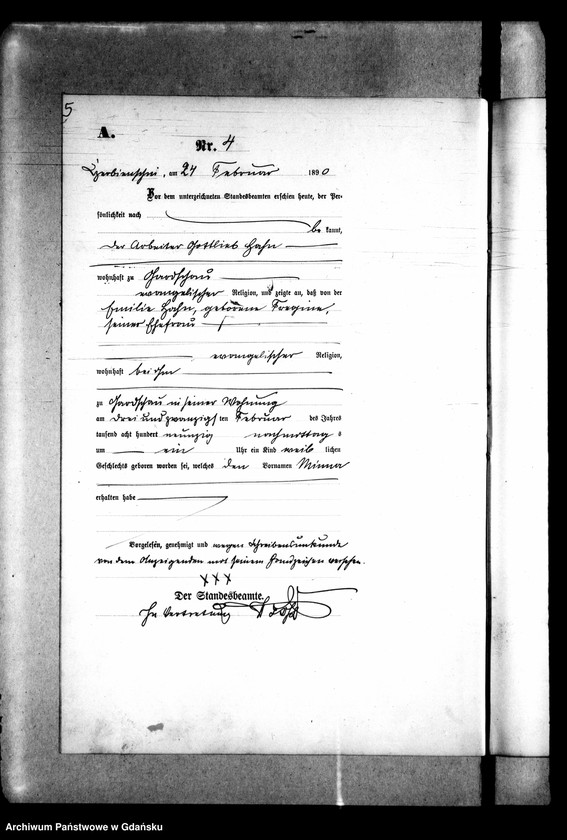 5
A.
Nr. 4
Czerbienschin, am 24 Februar 1890
Vor dem unterzeichneten Standesbeamten erschien heute, der Per-
sönlichkeit nach
be kannt,
der Arbeiter Gottlieb Hahn
wohnhaft zu Gardschau
evangelischer Religion, und zeigte an, daß von der
Emilie Hahn, geborene
seiner Ehefrau
evangelischer Religion,
wohnhaft bei ihm
zu Gardschau in seiner Wohnung
am drei und zwanzigsten Februar des Jahres
tausend acht hundert neunzig nachmittags
um ein Uhr ein Kind weiblichen
Geschlechts geboren worden sei, welches den Vornamen Minna
erhalten habe
Vorgelesen, genehmigt und wegen Schreibensunkunde
von dem Anzeigenden mit seinem Handzeichen versehen.
XXX
Der Standesbeamte.
In Vertretung
Archiwum Państwowe w Gdańsku